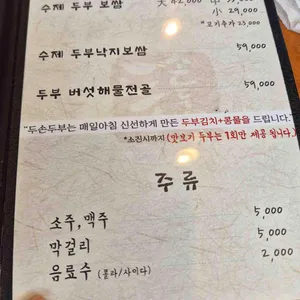 수제 두부 보쌈 大 42,000 中 35,000
小 29,000
*고기추가 25,000
수제 두부낙지보쌈 59,000
두부 버섯해물전골 59,000
"두손두부는 매일아침 신선하게 만든 두부김치+콩물을 드립니다."
*소진시까지 (맛보기 두부는 1회만 제공 됩니다.)
주류
소주, 맥주 5,000
막걸리 5,000
음료수 (콜라/사이다) 2,000